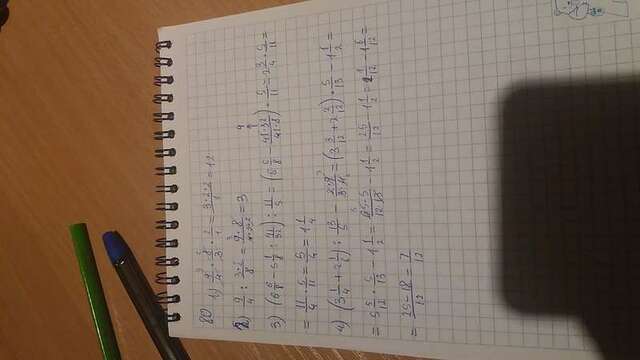 80 1) 9/4 · 8/3 · 2/1 = 3·2·2/1 = 12
2) 9/4 : 3·2/8 = 9·8/4·3·2 = 3
3) (6 6/8 - 5 1/8 : 41/32) : 11/5 = (6 6/8 - 41·32/41·8) · 5/11 = 2 3/4 · 5/11 =
= 11/4 · 5/11 = 5/4 = 1 1/4
4) (3 1/4 + 2 1/6) : 13/5 - =(3 3/12 + 2 2/12) · 5/13 - 1 1/2 =
= 5 5/12 · 5/13 - 1 1/2 = 65·5/12·13 - 1 1/2 = 25/12 - 1 1/2 = 2 1/12 - 1 6/12 =
= 25-18/12 = 7/12